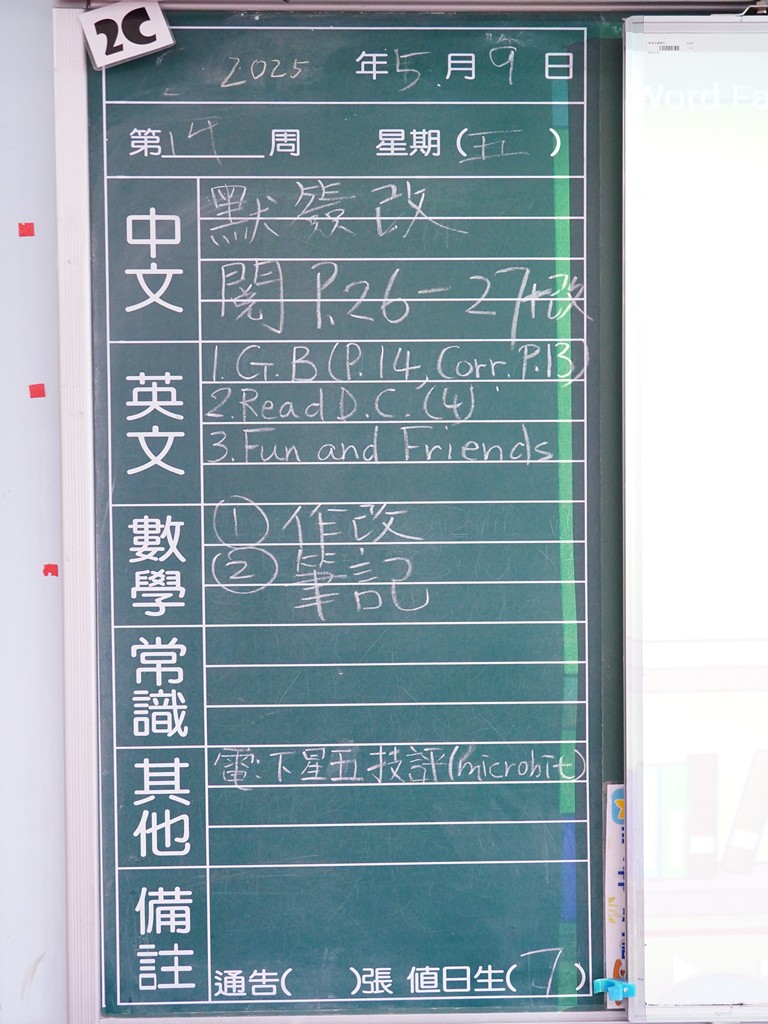 2C
2025 年 5 月 9 日
第 14 周 星期 ( 五 )
中文
默簽改
閱 P.26-27+改
英文
1. G.B (P.14, Corr. P.13)
2. Read D.C. (4)
3. Fun and Friends
數學
① 作改
② 筆記
常識
其他
電:下星五技評(microbit)
備註
通告( )張 值日生( 7 )
Word Fa